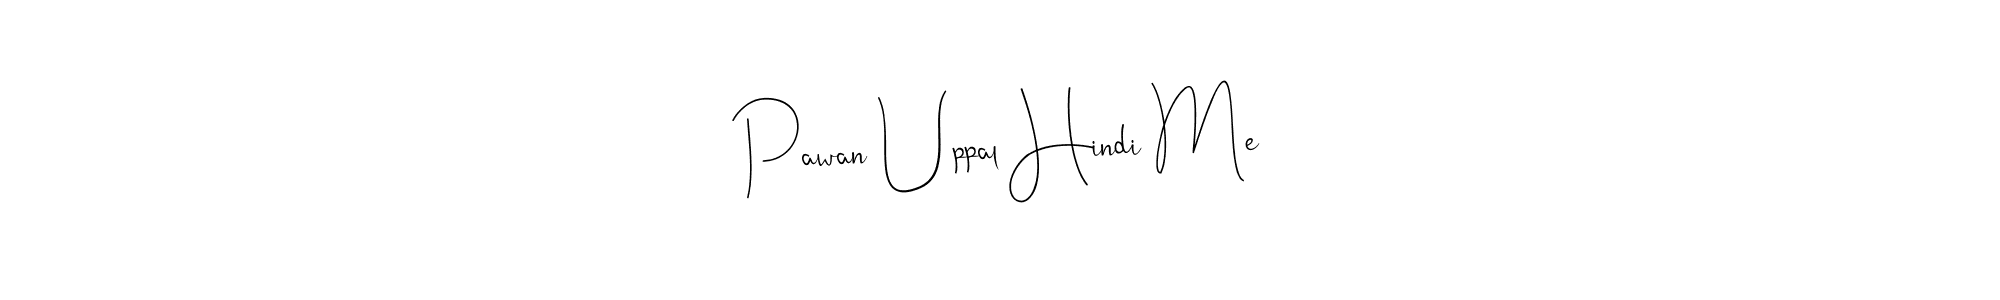 Pawan Uppal Hindi Me